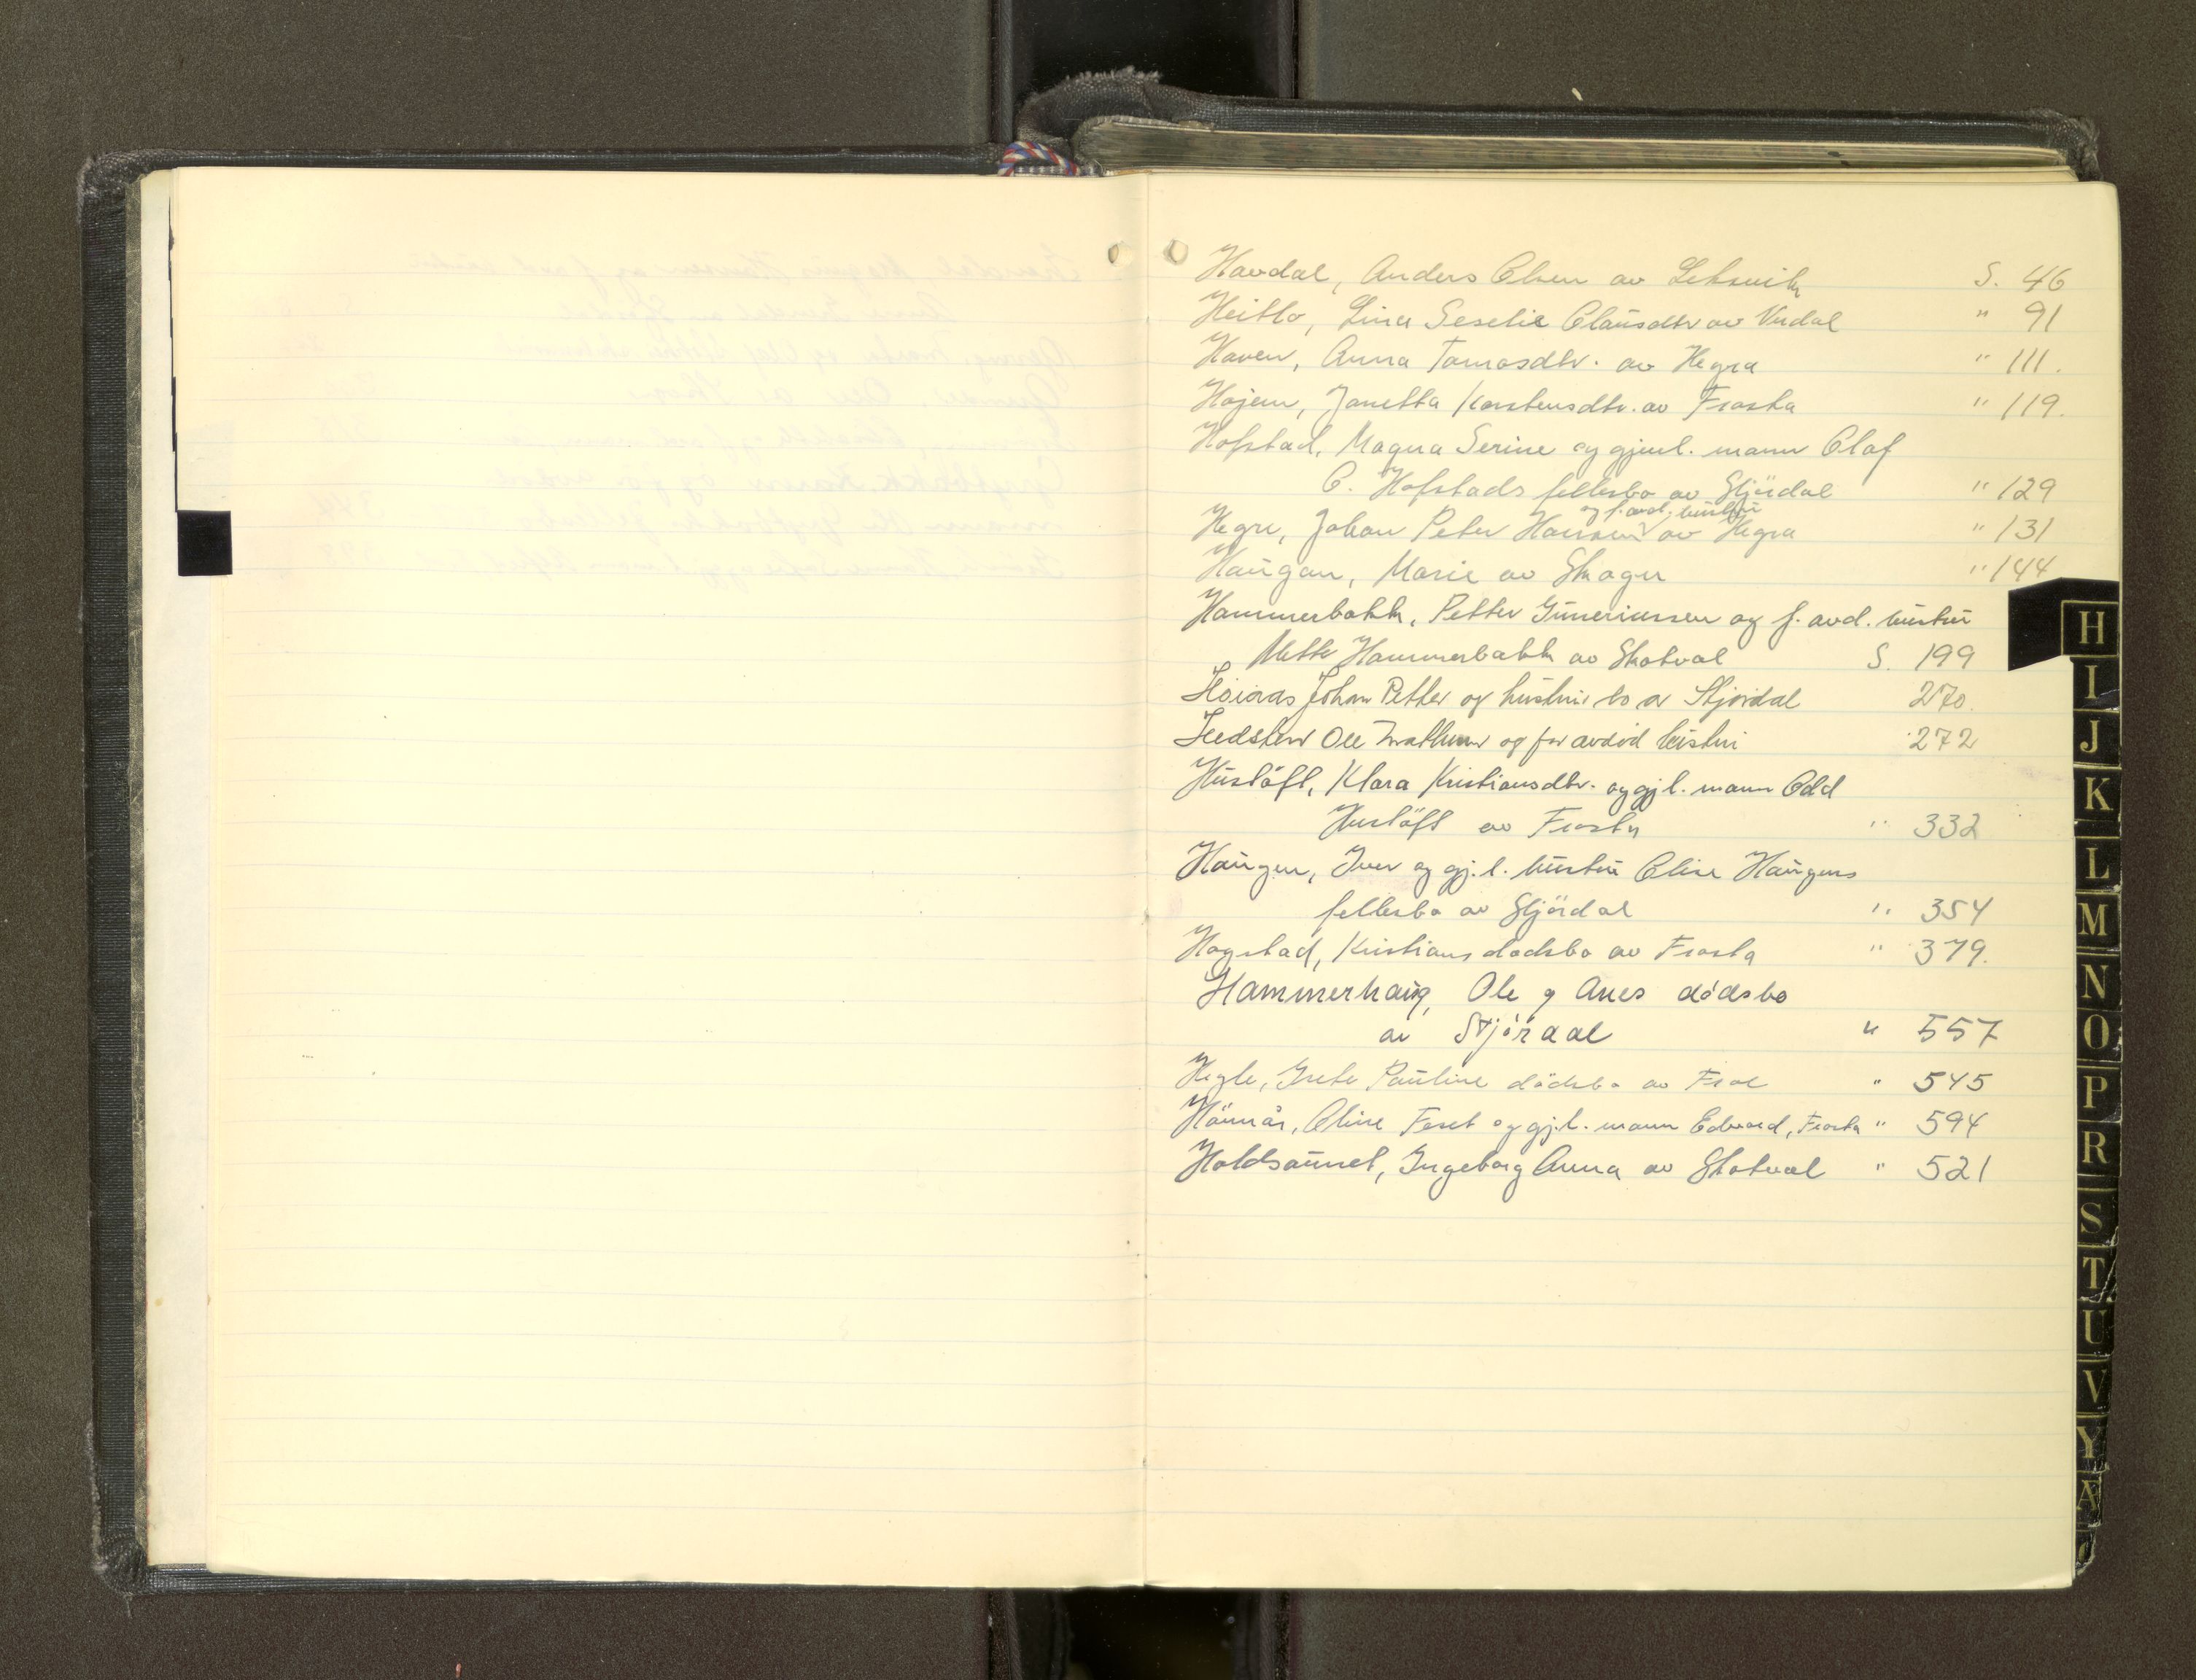 Havdal, Anders Olsen av Leksvik S. 46
Heitlo, Lina Seselie Olausdtr av Verdal " 91
Haven, Anna Tomasdtr. av Hegra " 111.
Hojem, Janetta Karstensdtr. av Frosta " 119.
Hofstad, Magna Serine og gjenl. mann Olaf
O. Hofstads fellesbo av Stjördal " 129
og f. avd. hustru
Hegre, Johan Peter Hansen av Hegra " 131
Haugan, Marie av Skogn " 144
Hammerbakk, Petter Guneriussen og f. avd. hustru
Mette Hammerbakk av Skatval S. 199
Høiaas Johan Petter og hustrus bo av Stjørdal 270.
Ole og før avdød hustru 272
Husløft, Klara Kristiansdtr. og gj l. mann Odd
Husløft av Frosta " 332
Haugen, Iver og gj. l. hustru Oline Haugens
fellesbo av Stjördal " 354
Hogstad, Kristians dødsbo av Frosta " 379.
Hammerhaug, Ole g Anes dødsbo
av Stjørdal " 557
Hegle, Grete Pauline dödsbo av Frol " 545
Oline Foset og gj.l. mann Edvard, Frosta " 594
Holdsaunet, Ingeborg Anna av Skatval " 521
H
I
J
K
L
M
N
O
P
R
S
T
U
V
Y
Æ